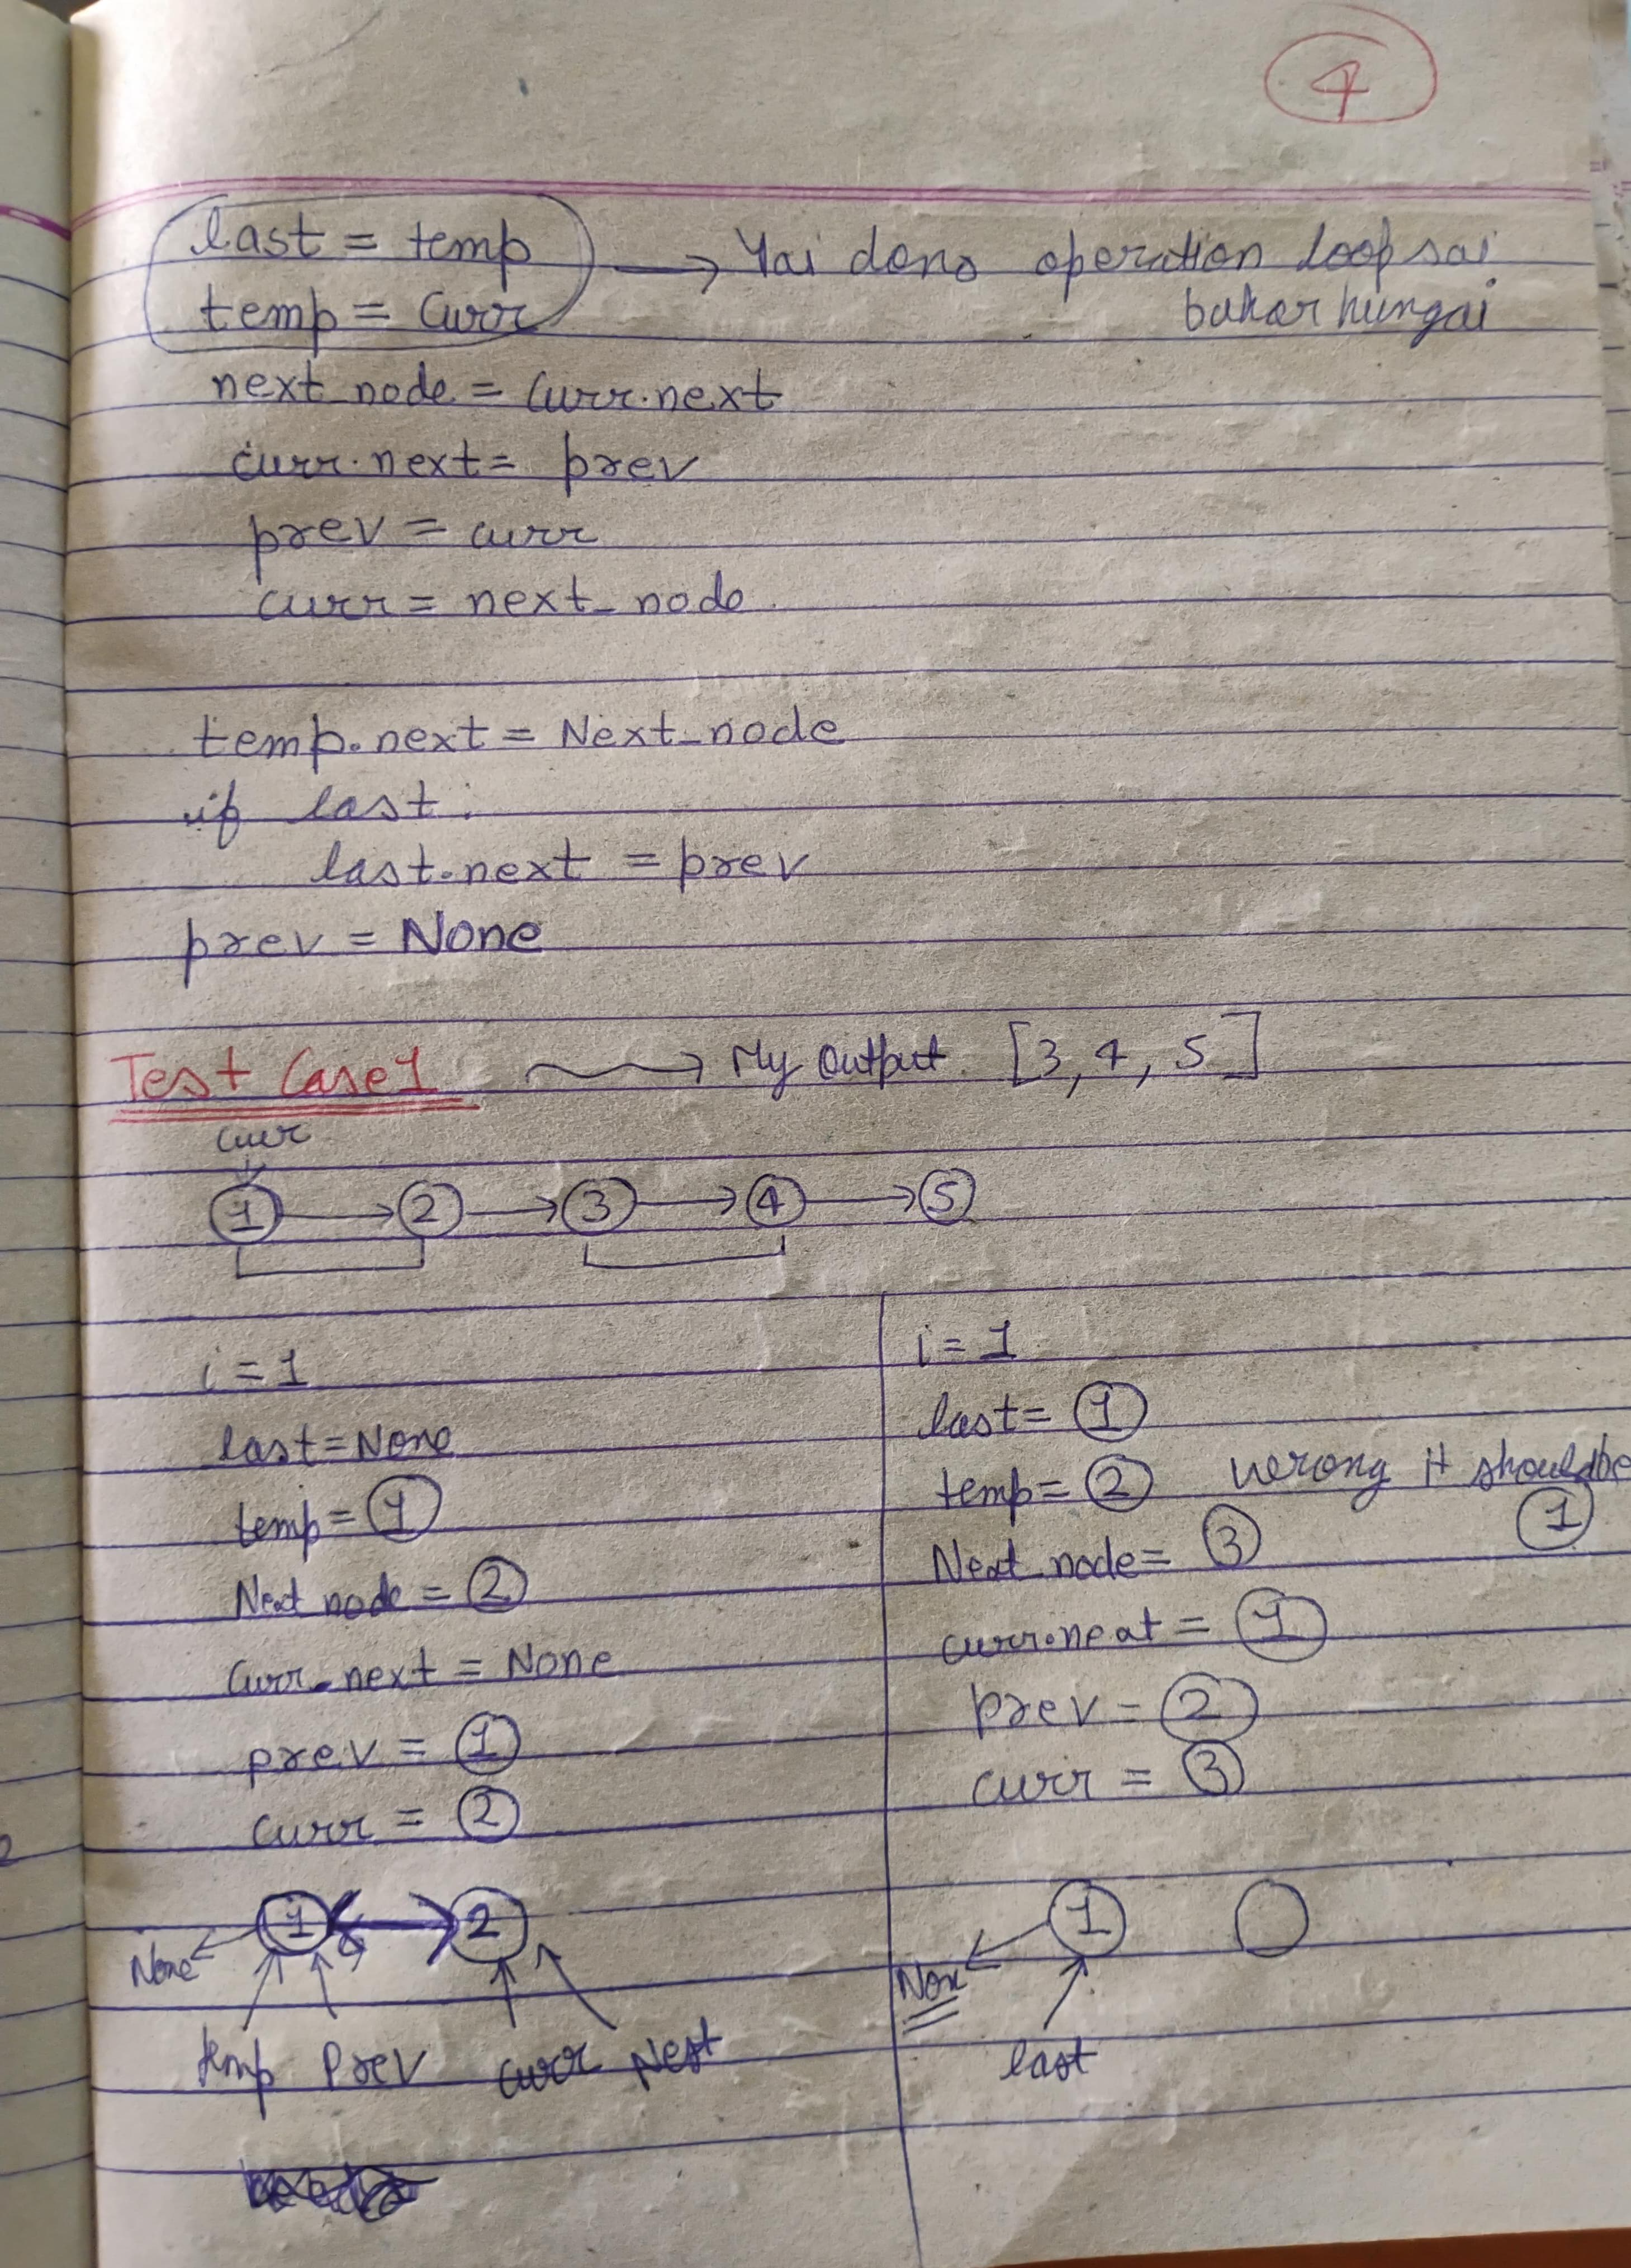 4
last = temp → Yai dono operation loop sai
temp = curr bahar hungai
next_node = curr.next
curr.next = prev
prev = curr
curr = next_node
temp.next = Next_node
if last:
last.next = prev
prev = None
Test Case 1 → My Output [3, 4, 5]
curr
1 → 2 → 3 → 4 → 5
i = 1
last = None
temp = 1
Next node = 2
Curr.next = None
prev = 1
curr = 2
1 2
None
temp Prev curr Next
i = 1
last = 1
temp = 2 wrong it should be
1
Next node = 3
curr.next = 1
prev = 2
curr = 3
1
None
last